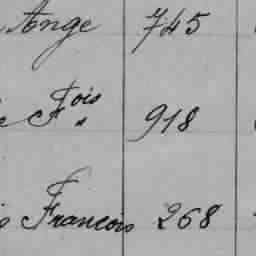 Ange 745
Fois 918
François 268